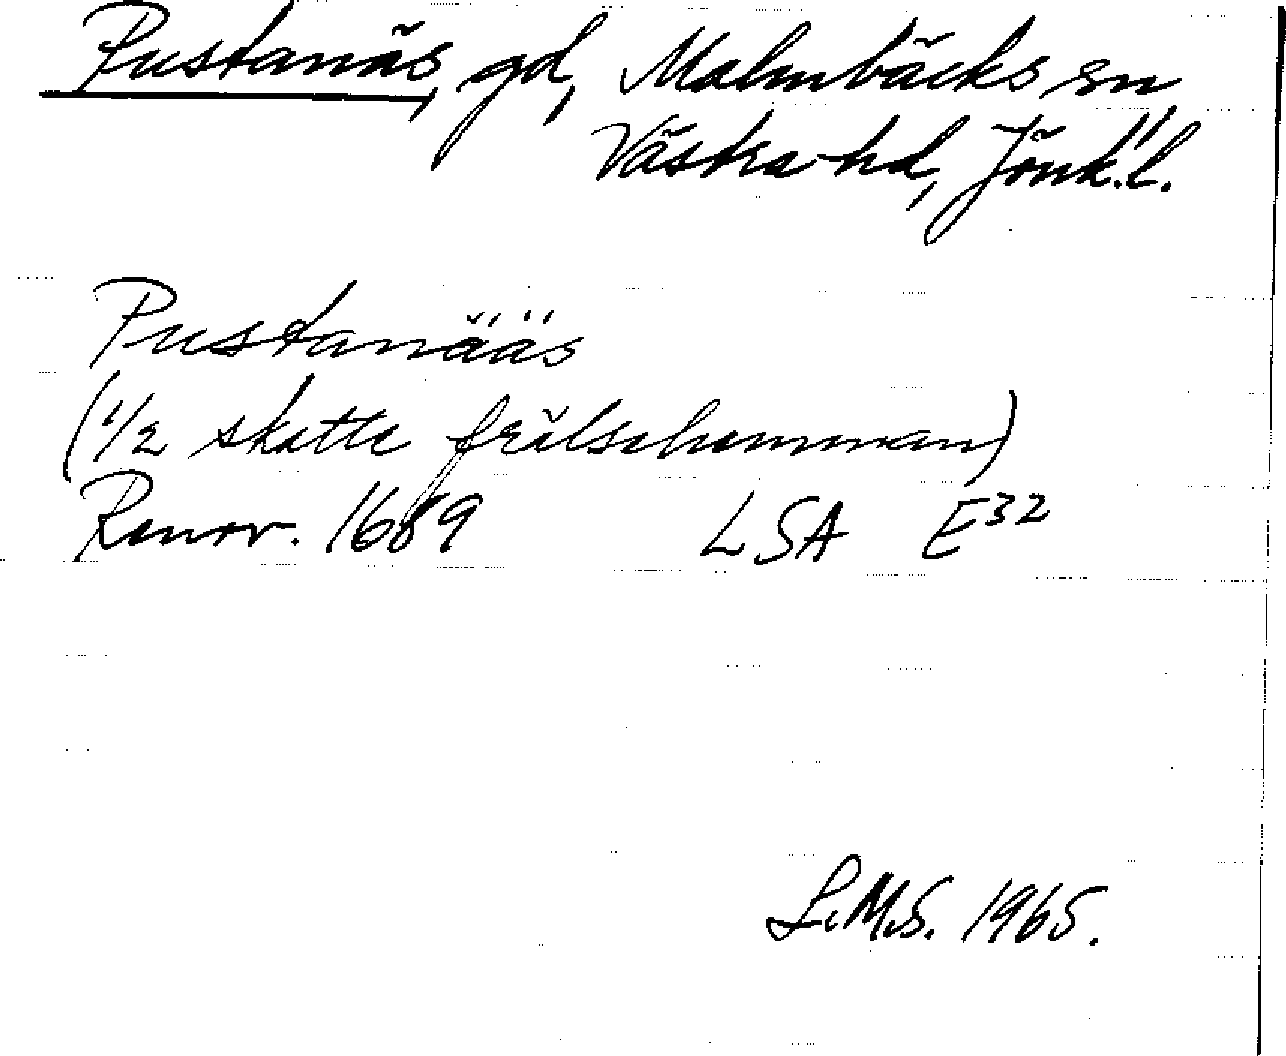 Pustanäs, gd, Malmbäcks sn,
Västra hd, Jönk. l.
Pustanääs
(1/2 skatte frälsehemman)
Renov. 1689 LSA E32
L.M.S. 1965.